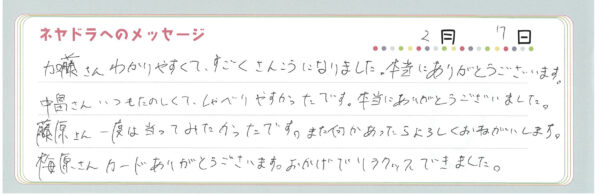 ネヤドラへのメッセージ 2月 17日
加藤さん わかりやすくて、すごくさんこうになりました。本当にありがとうございます。
中畠さん いつもたのしくて、しゃべりやすかったです。本当にありがとうございました。
藤原さん 一度は当ってみたかったです。また何かあったらよろしくおねがいします。
梅原さん カードありがとうございます。おかげでリラックスできました。